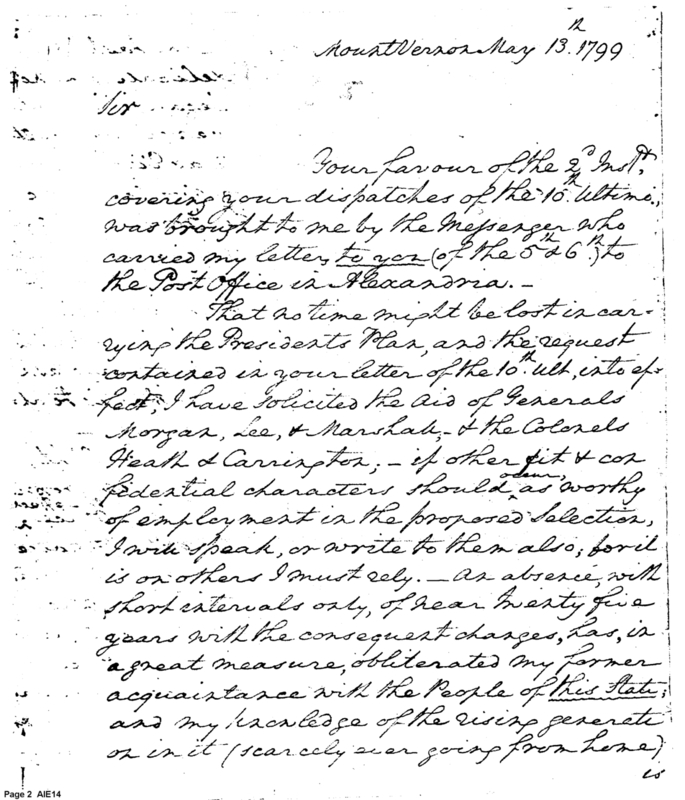 Mount Vernon May 13.th 1799
Sir
Your favour of the 2.d Inst.t,
covering your dispatches of the 10.th Ultimo,
was brought to me by the Messenger who
carried my letters to you (of the 5.th & 6.th) to
the Post Office in Alexandria.—
That no time might be lost in car-
rying the Presidents Plan, and the request
contained in your letter of the 10.th Ult, into ef-
fect, I have solicited the Aid of Generals
Morgan, Lee, & Marshall,— & the Colonels
Heath & Carrington;— if other fit & con
fidential characters should occur, as worthy
of employment in the proposed Selection,
I will speak, or write to them also; for it
is on others I must rely.— An absence, with
short intervals only, of near twenty five
years with the consequent changes, has, in
a great measure, obliterated my former
acquaintance with the People of this State;
and my knowledge of the rising generati
on in it (scarcely ever going from home)
is
Page 2 AIE14